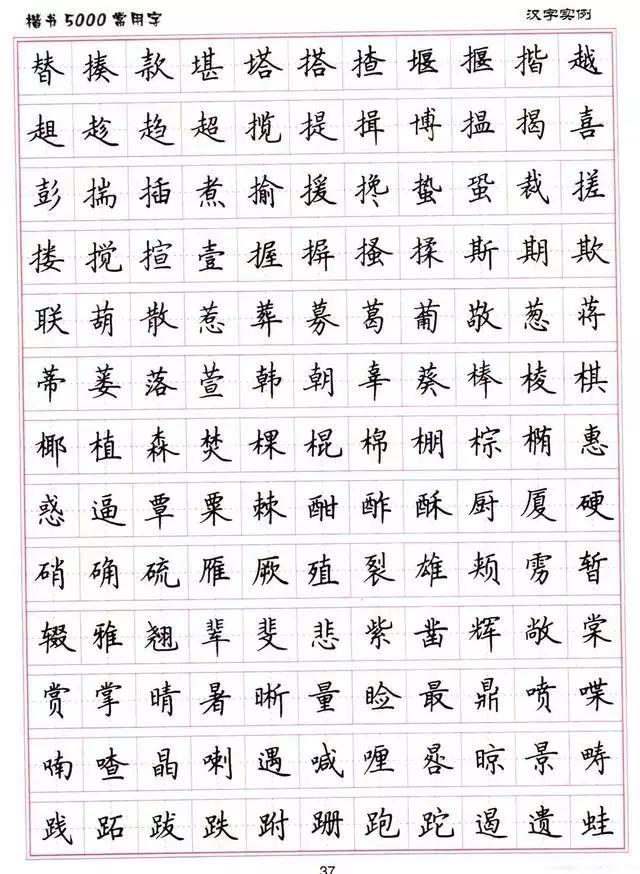 楷书5000常用字 汉字实例
替揍款堪塔搭揸堰揠揩越
趄趁趋超揽提揖博揾揭喜
彭揣插煮揄援搀蛰蛩裁搓
搂搅揎壹握摒搔揉斯期欺
联葫散惹葬募葛葡敬葱蒋
蒂蒌落萱韩朝辜葵棒棱棋
椰植森焚棵棍棉棚棕椭惠
惑逼覃粟棘酣酢酥厨厦硬
硝确硫雁厥殖裂雄颊雳暂
辍雅翘辈斐悲紫凿辉敞棠
赏掌晴暑晰量睑最鼎喷喋
喃喳晶喇遇喊喱晷晾景畴
践跖跋跌跗跚跑跎遏遗蛙
37